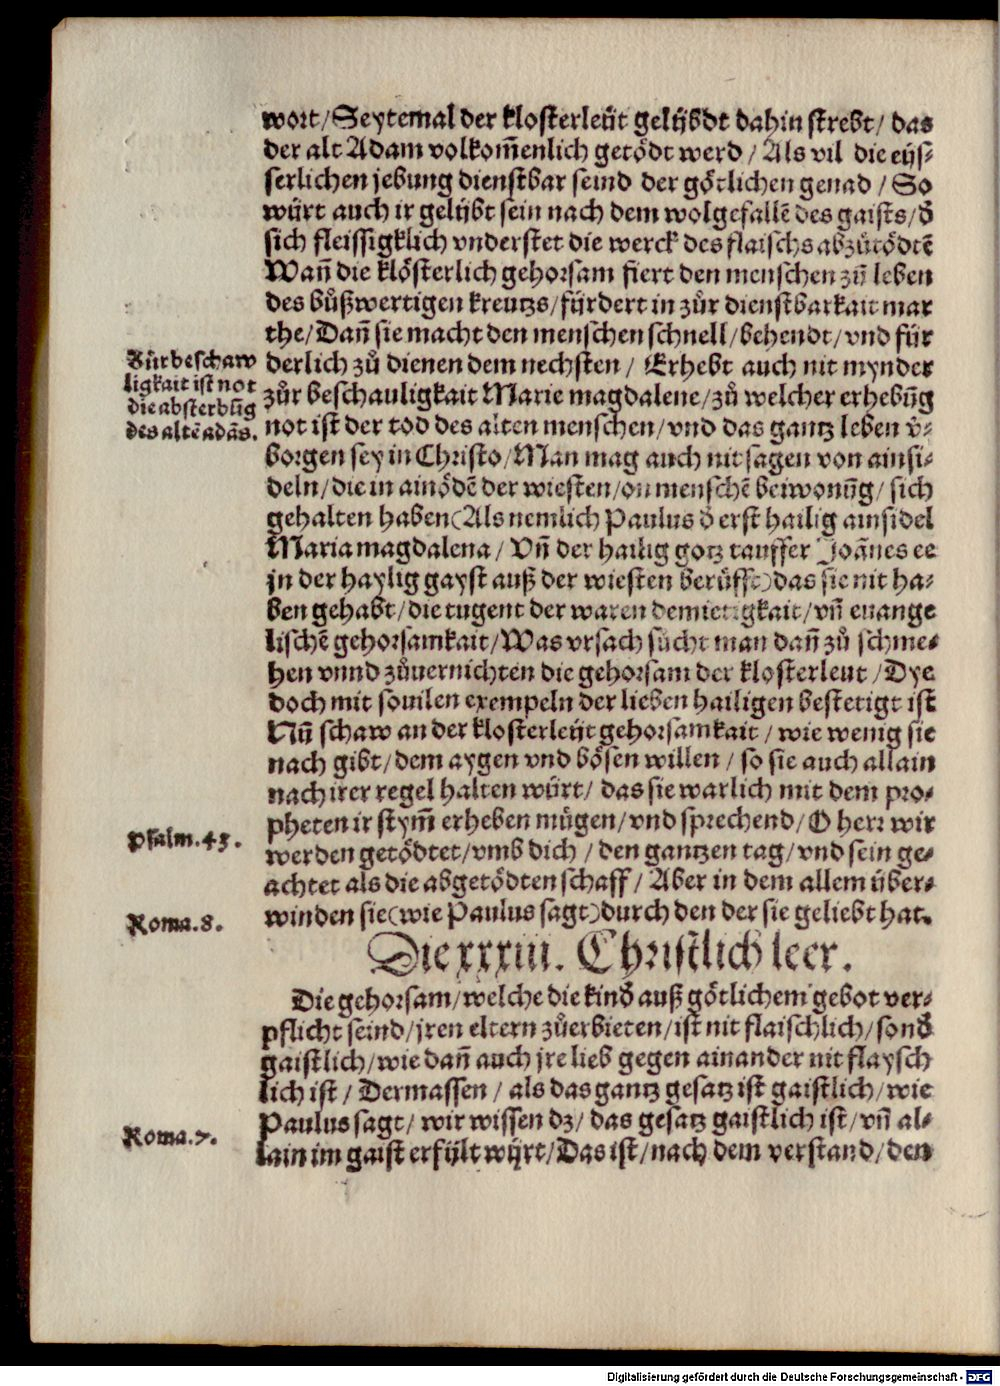 wort/Seytemal der klosterleüt gelÿbdt dahin strebt/ das
der alt Adam volkom̃enlich getödt werd/ Als vil die eÿs⸗
serlichen jebung dienstbar seind der götlichen genad/ So
würt auch ir gelÿbt sein nach dem wolgefallẽ des gaists/ď
sich fleissigklich vnderstet die werck des flaischs abzůtödtẽ
Wañ die klösterlich gehorsam fiert den menschen zů leben
des bůßwertigen kreutzs/fürdert in zůr dienstbarkait mar
the/Dañ sie macht den menschen schnell/behendt/vnd für
Zůr beschaw
ligkait ist not
die absterbũg
des altẽ adãs.
derlich zů dienen dem nechsten/ Erhebt auch nit mynder
zůr beschauligkait Marie magdalene/zů welcher erhebũg
not ist der tod des alten menschen/vnd das gantz leben v̈⸗
borgen sey in Christo/Man mag auch nit sagen von ainsi⸗
deln/die in ainödẽ der wiesten/on menschẽ beiwonũg/ sich
gehalten haben(Als nemlich Paulus ď erst hailig ainsidel
Maria magdalena/ Vñ der hailig gotz tauffer Joãnes ee
jn der haylig gayst auß der wiesten berůfft)das sie nit ha⸗
ben gehabt/die tugent der waren demietigkait/vñ euange
lischẽ gehorsamkait/Was vrsach sůcht man dañ zů schme⸗
hen vnnd zůuernichten die gehorsam der klosterleut/Dye
doch mit souilen exempeln der lieben hailigen bestetigt ist
Nũ schaw an der klosterleüt gehorsamkait/ wie wenig sie
nach gibt/dem aygen vnd bösen willen/ so sie auch allain
nach irer regel halten würt/ das sie warlich mit dem pro⸗
pheten ir stym̃ erheben mügen/vnd sprechend/O herr wir
Psalm.43.
werden getödtet/vmb dich/ den gantzen tag/vnd sein ge⸗
achtet als die abgetödten schaff/ Aber in dem allem über⸗
Roma.8.
winden sie(wie Paulus sagt)durch den der sie geliebt hat.
Die xxxiii. Christlich leer.
Die gehorsam/welche die kinď auß götlichem gebot ver⸗
pflicht seind/jren eltern zůerbieten/ist nit flaischlich/sonď
gaistlich/wie dañ auch jre lieb gegen ainander nit flaysch
lich ist/ Dermassen/ als das gantz gesatz ist gaistlich/wie
Roma.7.
Paulus sagt/ wir wissen dz/ das gesatz gaistlich ist/vñ al⸗
lain im gaist erfÿlt wÿrt/Das ist/nach dem verstand/den
Digitalisierung gefördert durch die Deutsche Forschungsgemeinschaft - DFG